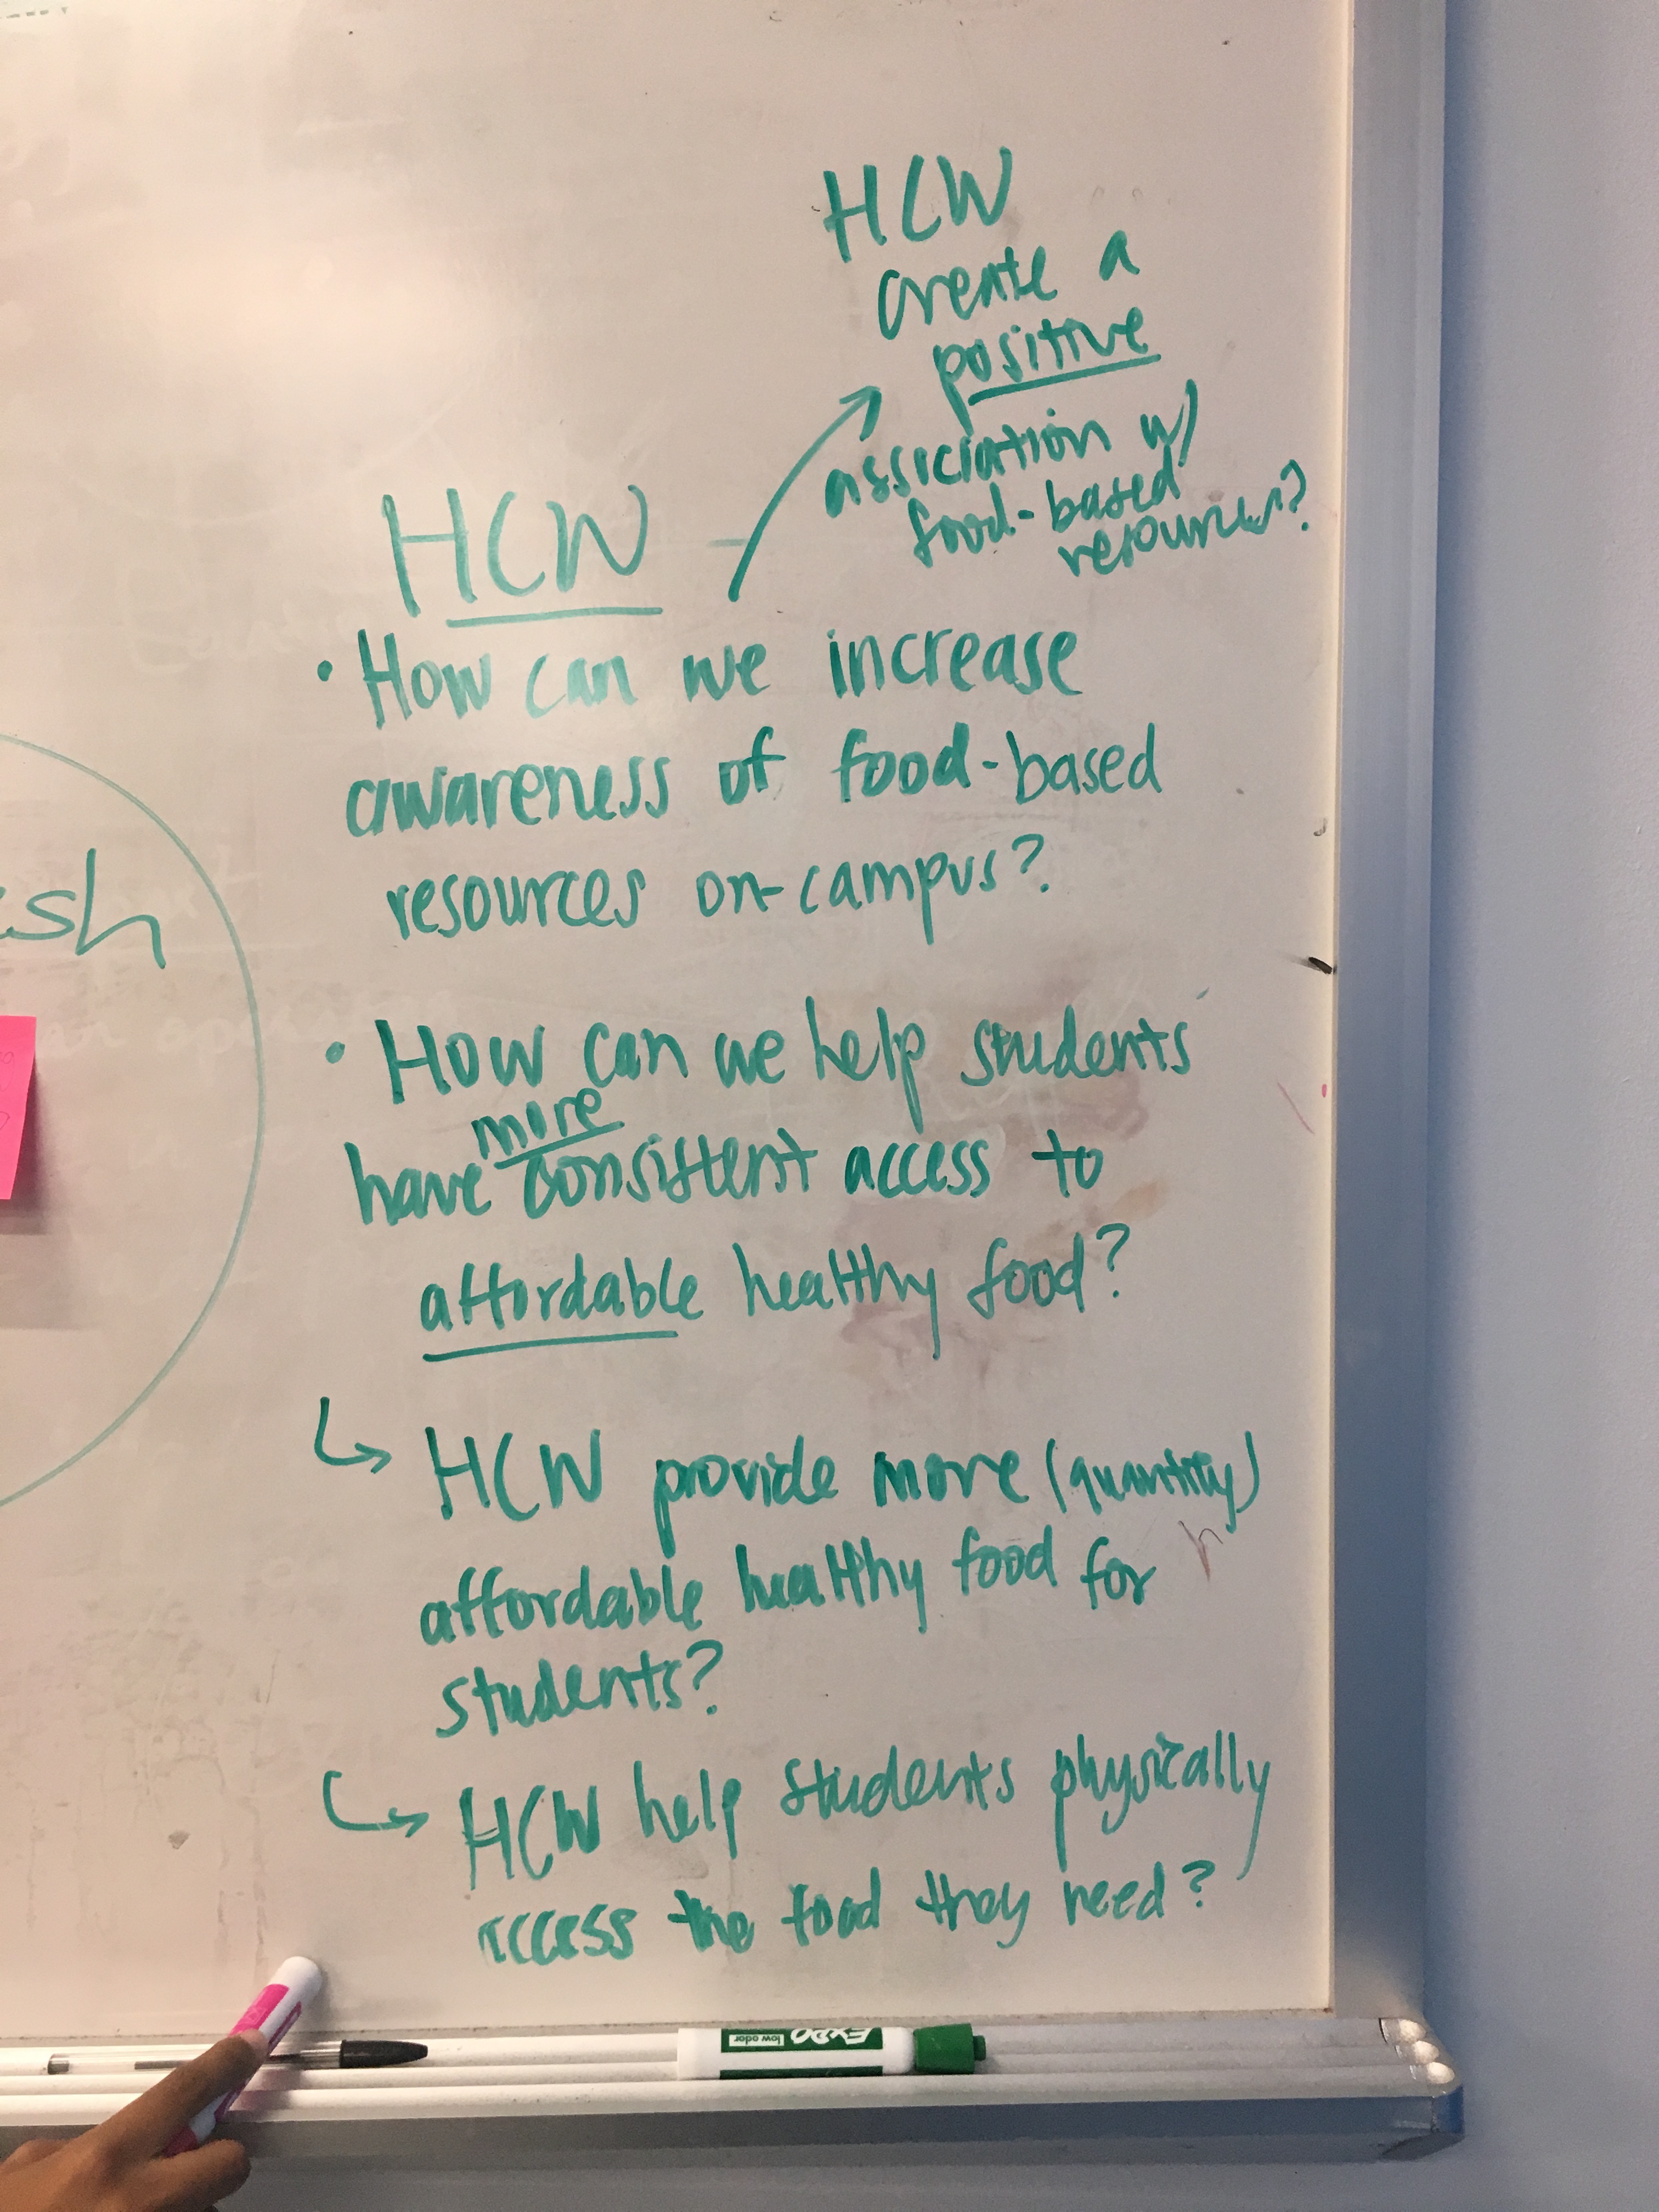 HCW
create a
positive
association w/
food-based
resources?
HCW
• How can we increase
awareness of food-based
resources on-campus?
• How can we help students
more
have consistent access to
affordable healthy food?
↳ HCW provide more (quantity)
affordable healthy food for
students?
↳ HCW help students physically
access the food they need?
sh
EXPO
low odor